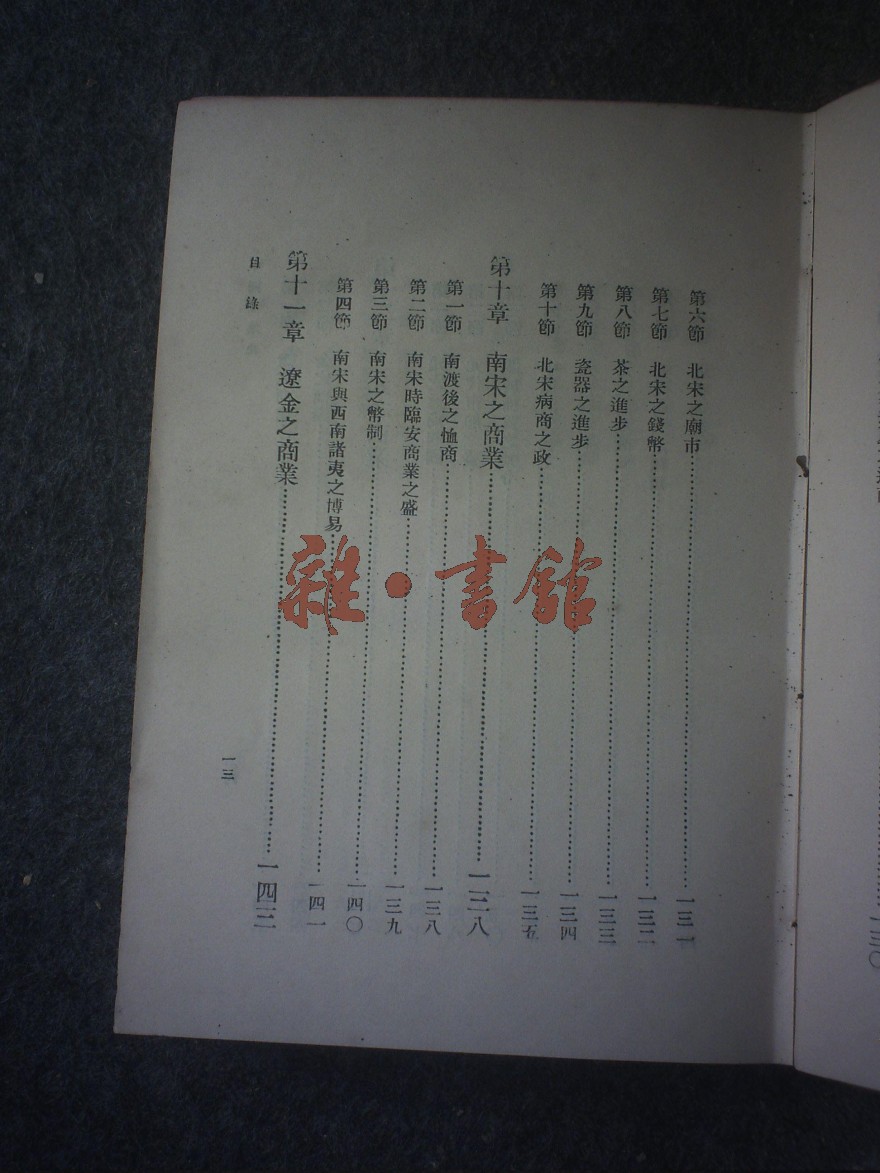 第六節 北宋之廟市……一三一
第七節 北宋之錢幣……一三二
第八節 茶之進步……一三三
第九節 瓷器之進步……一三四
第十節 北宋病商之政……一三五
第十章 南宋之商業……一三八
第一節 南渡後之恤商……一三八
第二節 南宋時臨安商業之盛……一三九
第三節 南宋之幣制……一四〇
第四節 南宋與西南諸夷之博易……一四一
第十一章 遼金之商業……一四三
目錄
一三
雜·書館